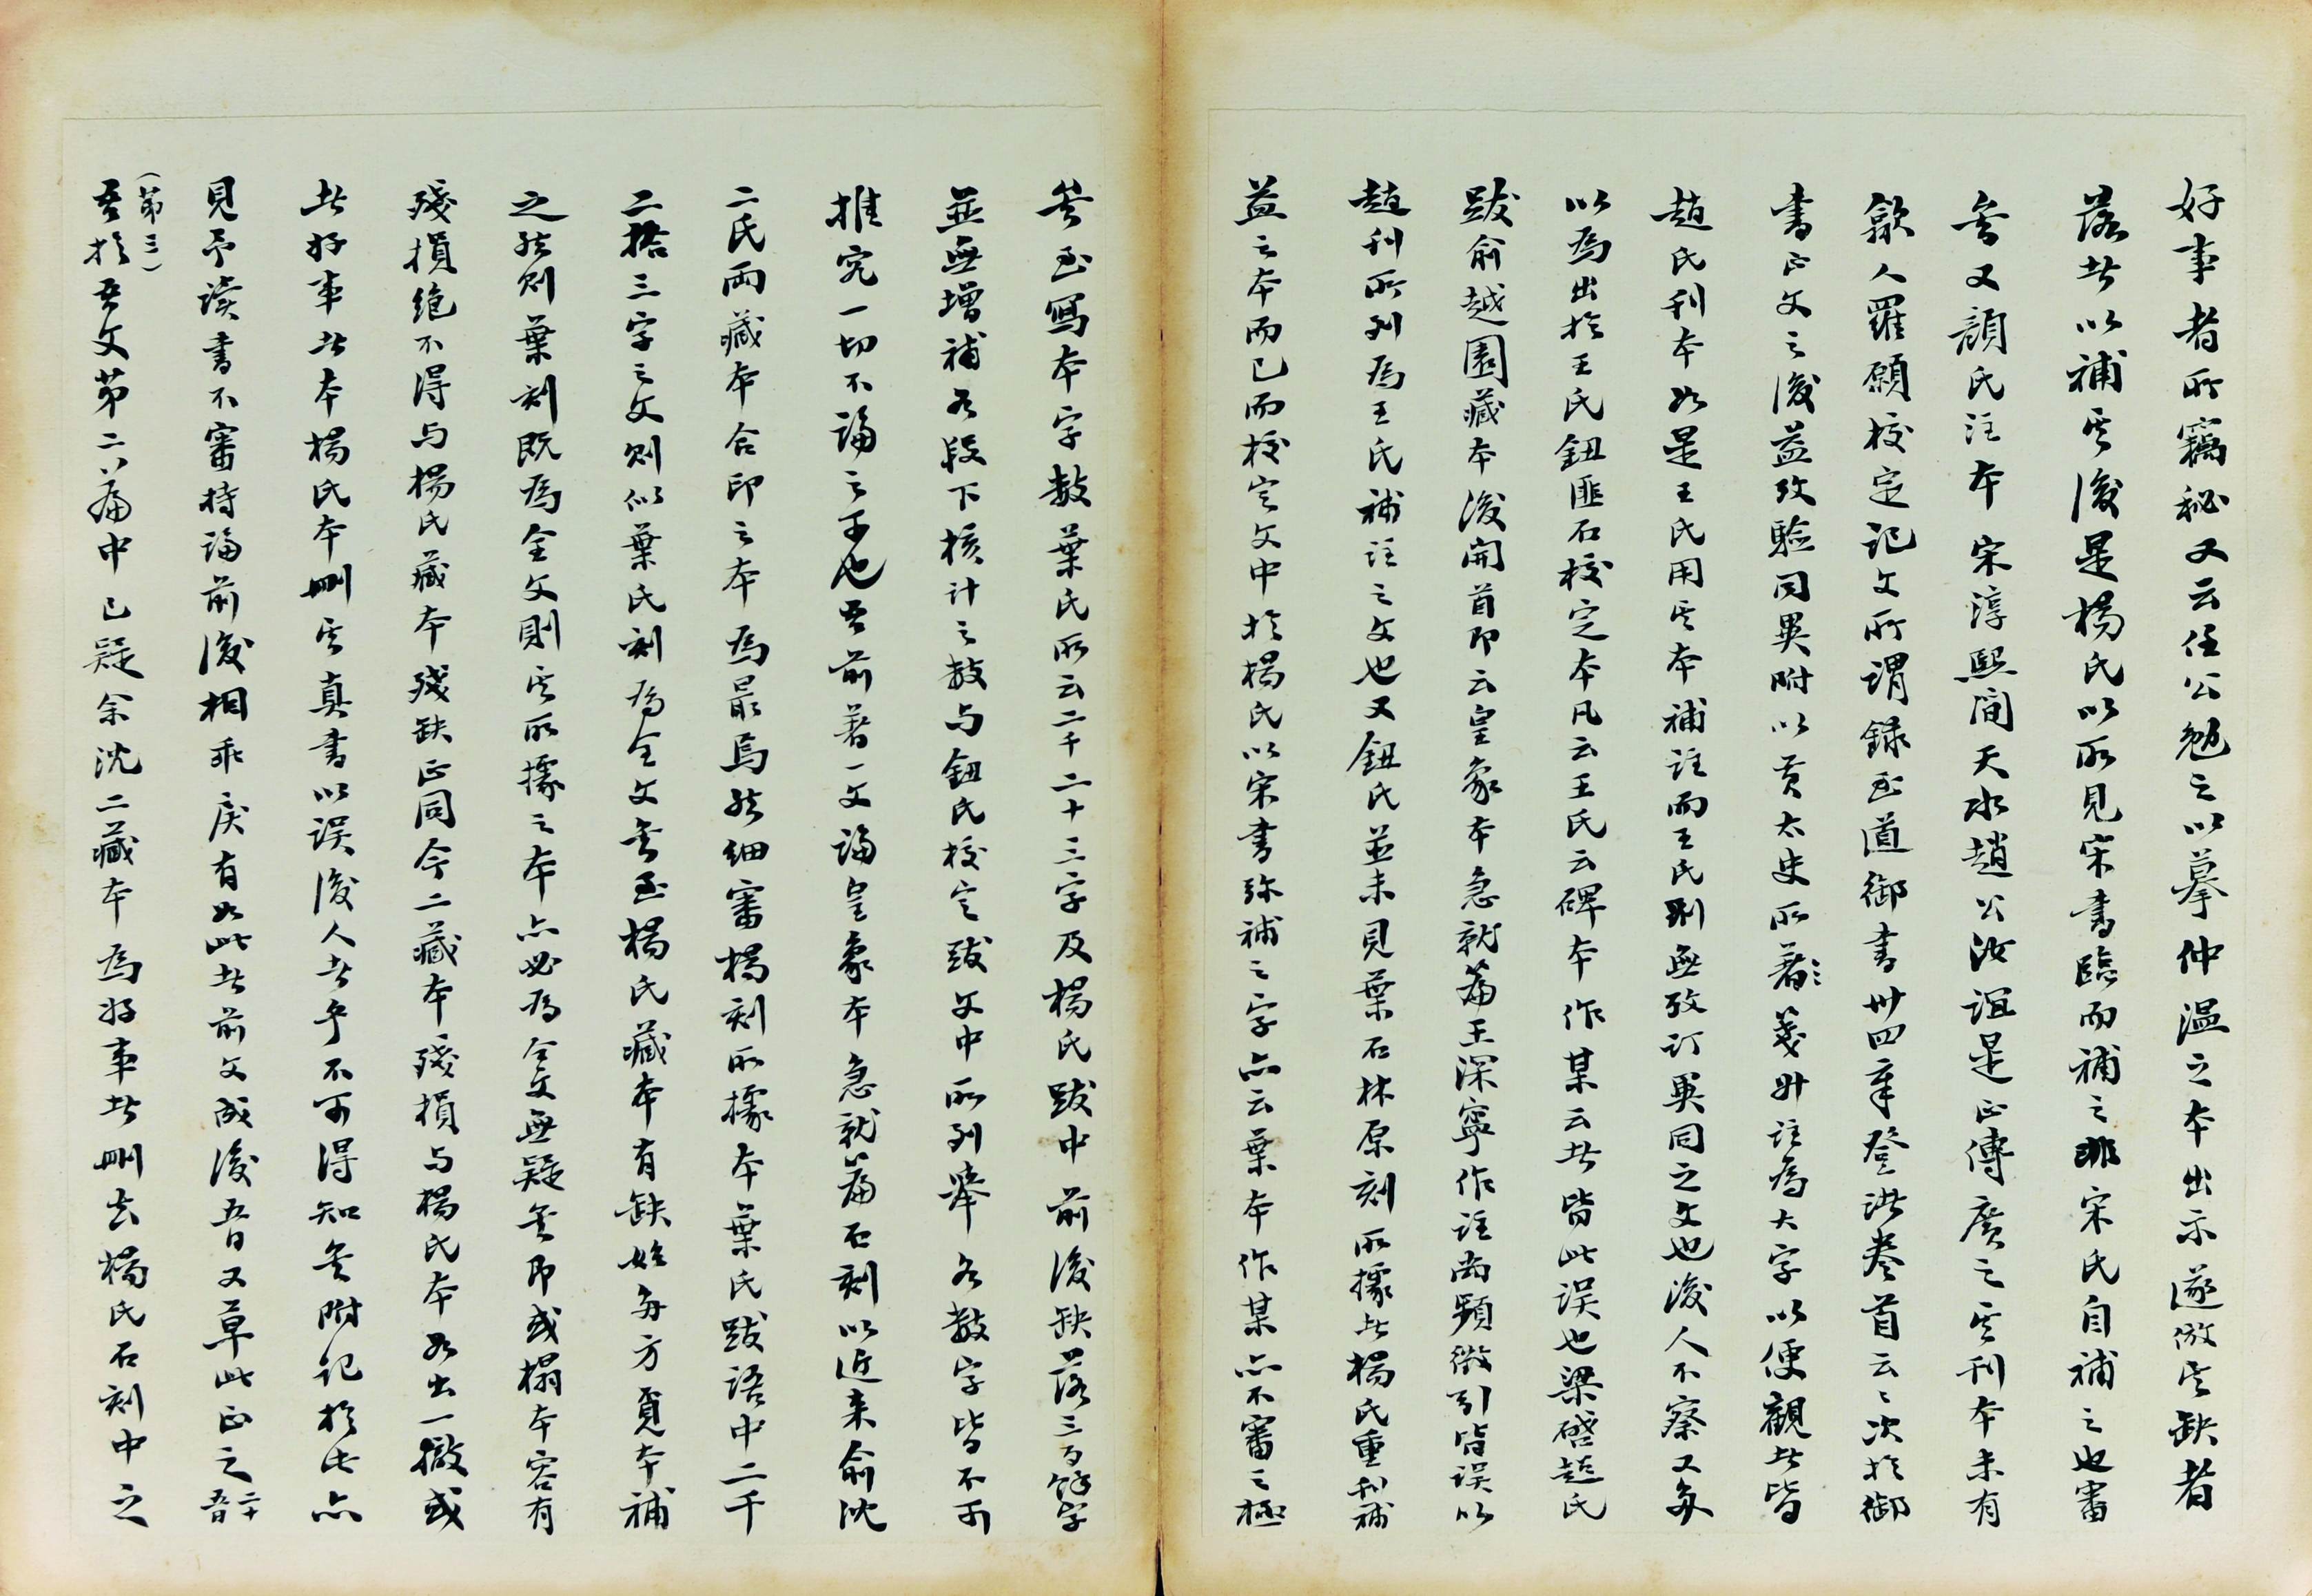 好事者所竊秘又云任公勉之以摹仲温之本出示遂倣其缺者
落者以補其後是楊氏以所見宋書臨而補之非宋氏自補之也審
矣又顔氏注本宋淳熙間天水趙公汝誼是正傳廣之其刊本未有
歙人羅願校定記文所謂録至道御書卅四章登諸卷首云云次於御
書正文之後益攷驗同異附以黄太史所著箋升注為大字以便觀者皆
趙氏刊本如是王氏用其本補註而王氏則無攷訂異同之文也後人不察又多
以為出於王氏鈕匪石校定本凡云王氏云碑本作某云者皆此误也梁啓超氏
跋俞越園藏本後開首即云皇象本急就篇王深寧作註尚頻徵引皆误以
趙刊所列為王氏補註之文也又鈕氏並未見葉石林原刻所據者楊氏重刊補
益之本而已而校定文中於楊氏以宋書弥補之字亦云葉本作某亦不審之極
矣至寫本字数葉氏所云二千二十三字及楊氏跋中前後缺落三百餘字
並無增補各段下核計之数与鈕氏校定跋文中所列舉各数字皆不可
推究一切不論之可也吾前著一文論皇象本急就篇石刻以近来俞沈
二氏兩藏本合印之本為最焉然细審楊刻所據本葉氏跋语中二千
二拾三字之文则似葉氏刻為全文矣至楊氏藏本有缺始多方覓本補
之然则葉刻既為全文則其所據之本亦必為全文無疑矣即或搨本容有
殘損绝不得与楊氏藏本殘缺正同今二藏本殘損与楊氏本如出一轍或
者好事者本楊氏本删其真書以误後人者乎不可得知矣附记於此亦
見予读書不審持論前後相乖戾有如此者前文成後吾又草此正之二十五日
（第三）
吾於吾文第二篇中已疑余沈二藏本為好事者删去楊氏石刻中之